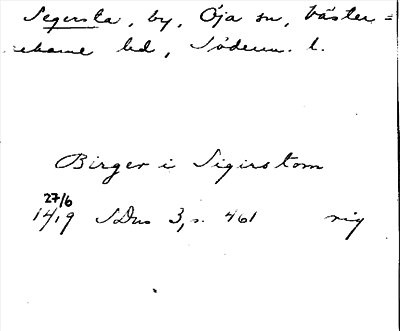 Segersta, by, Öja sn, Väster=
rekarne hd, Söderm. l.
Birger i Sigirstom
27/6
1419 SDns 3, s. 461 sig